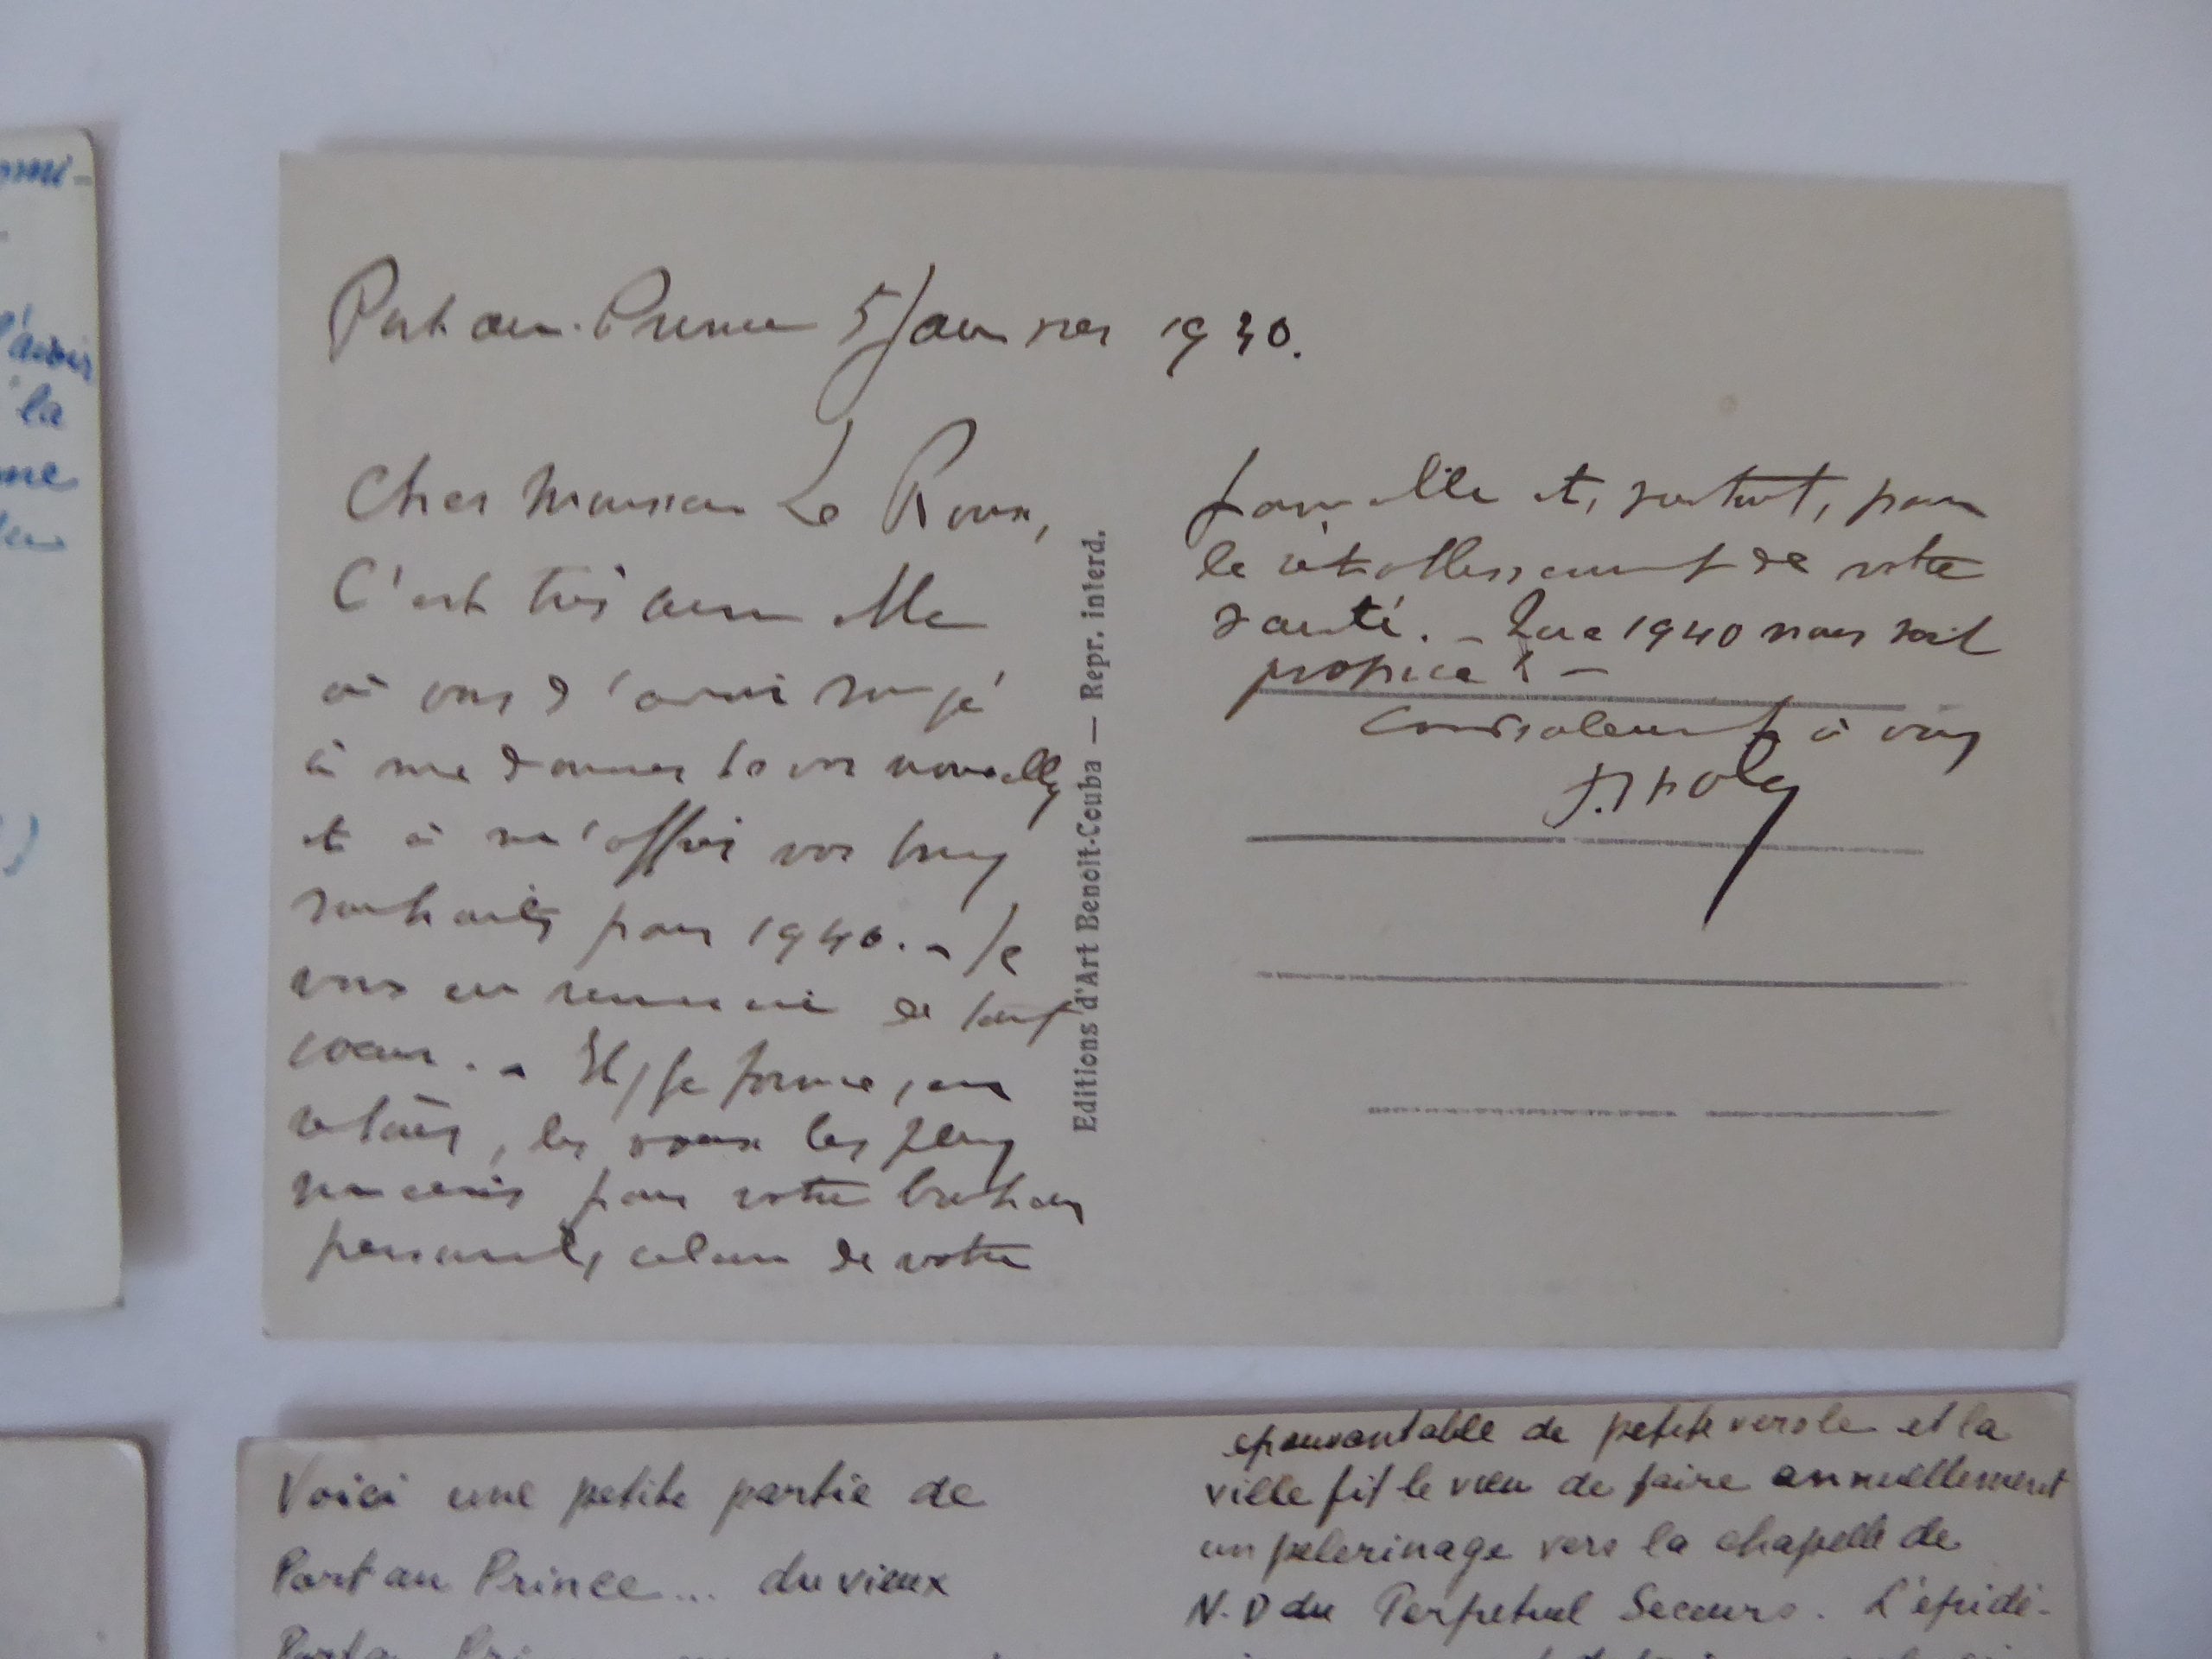 omi-
l'avoir
la
me
Port au-Prince 5 Janvier 1940.
Cher Monsieur Le Roux,
C'est très aimable
à vous d'avoir songé
à me donner de vos nouvelles
et à m'offrir vos bons
souhaits pour 1940. - Je
vous en remercie de tout
cœur. - Et, je forme, en
retour, les vœux les plus
sincères pour votre bonheur
personnel, celui de votre
famille et, surtout, pour
le rétablissement de votre
santé. - Que 1940 nous soit
propice ! -
Cordialement à vous
Editions d'Art Benoit-Couba — Repr. interd.
Voici une petite partie de
Port au Prince... du vieux
épouvantable de petite verole et la
ville fit le vœu de faire annuellement
un pelerinage vers la chapelle de
N.D du Perpetuel Secours. L'épidé-